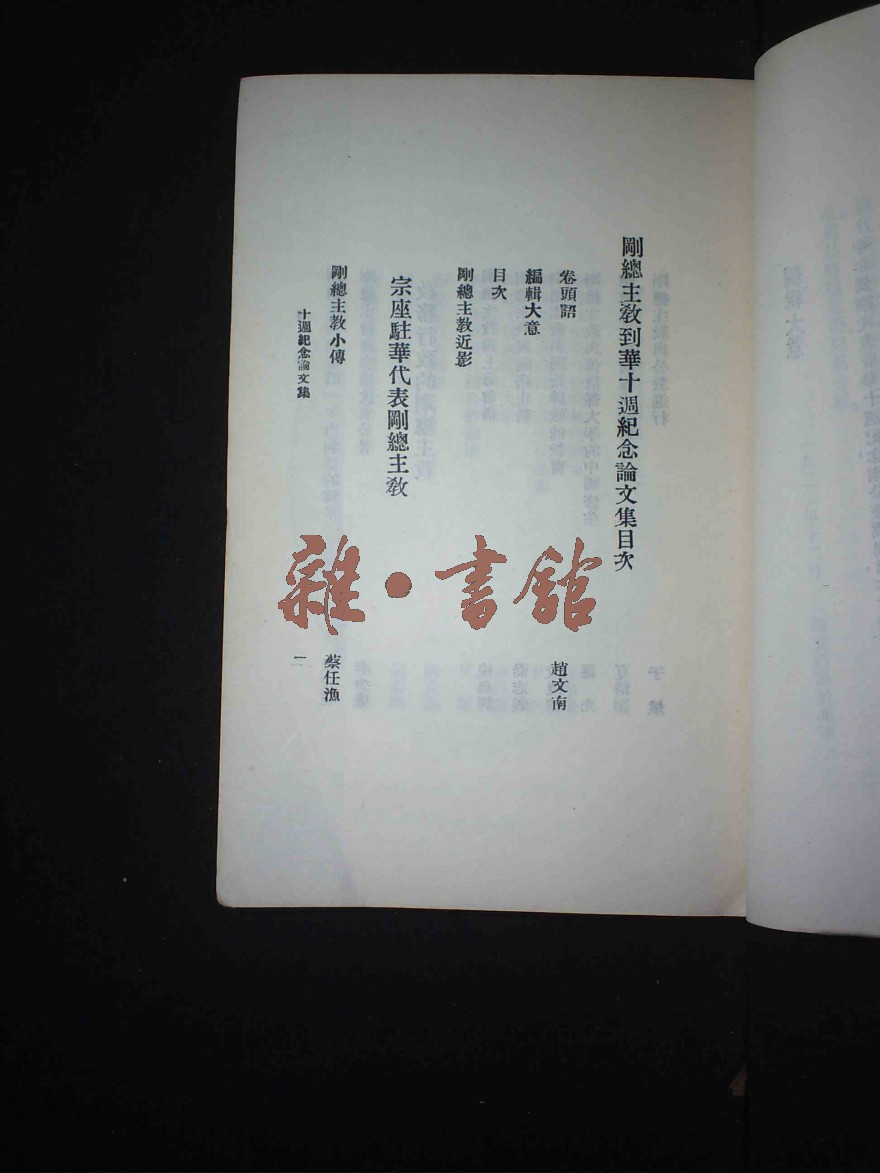 剛總主教到華十週紀念論文集目次
卷頭語 趙文南
編輯大意
目次
剛總主教近影
宗座駐華代表剛總主教
剛總主教小傳 蔡任漁
十週紀念論文集 一
雜·書館